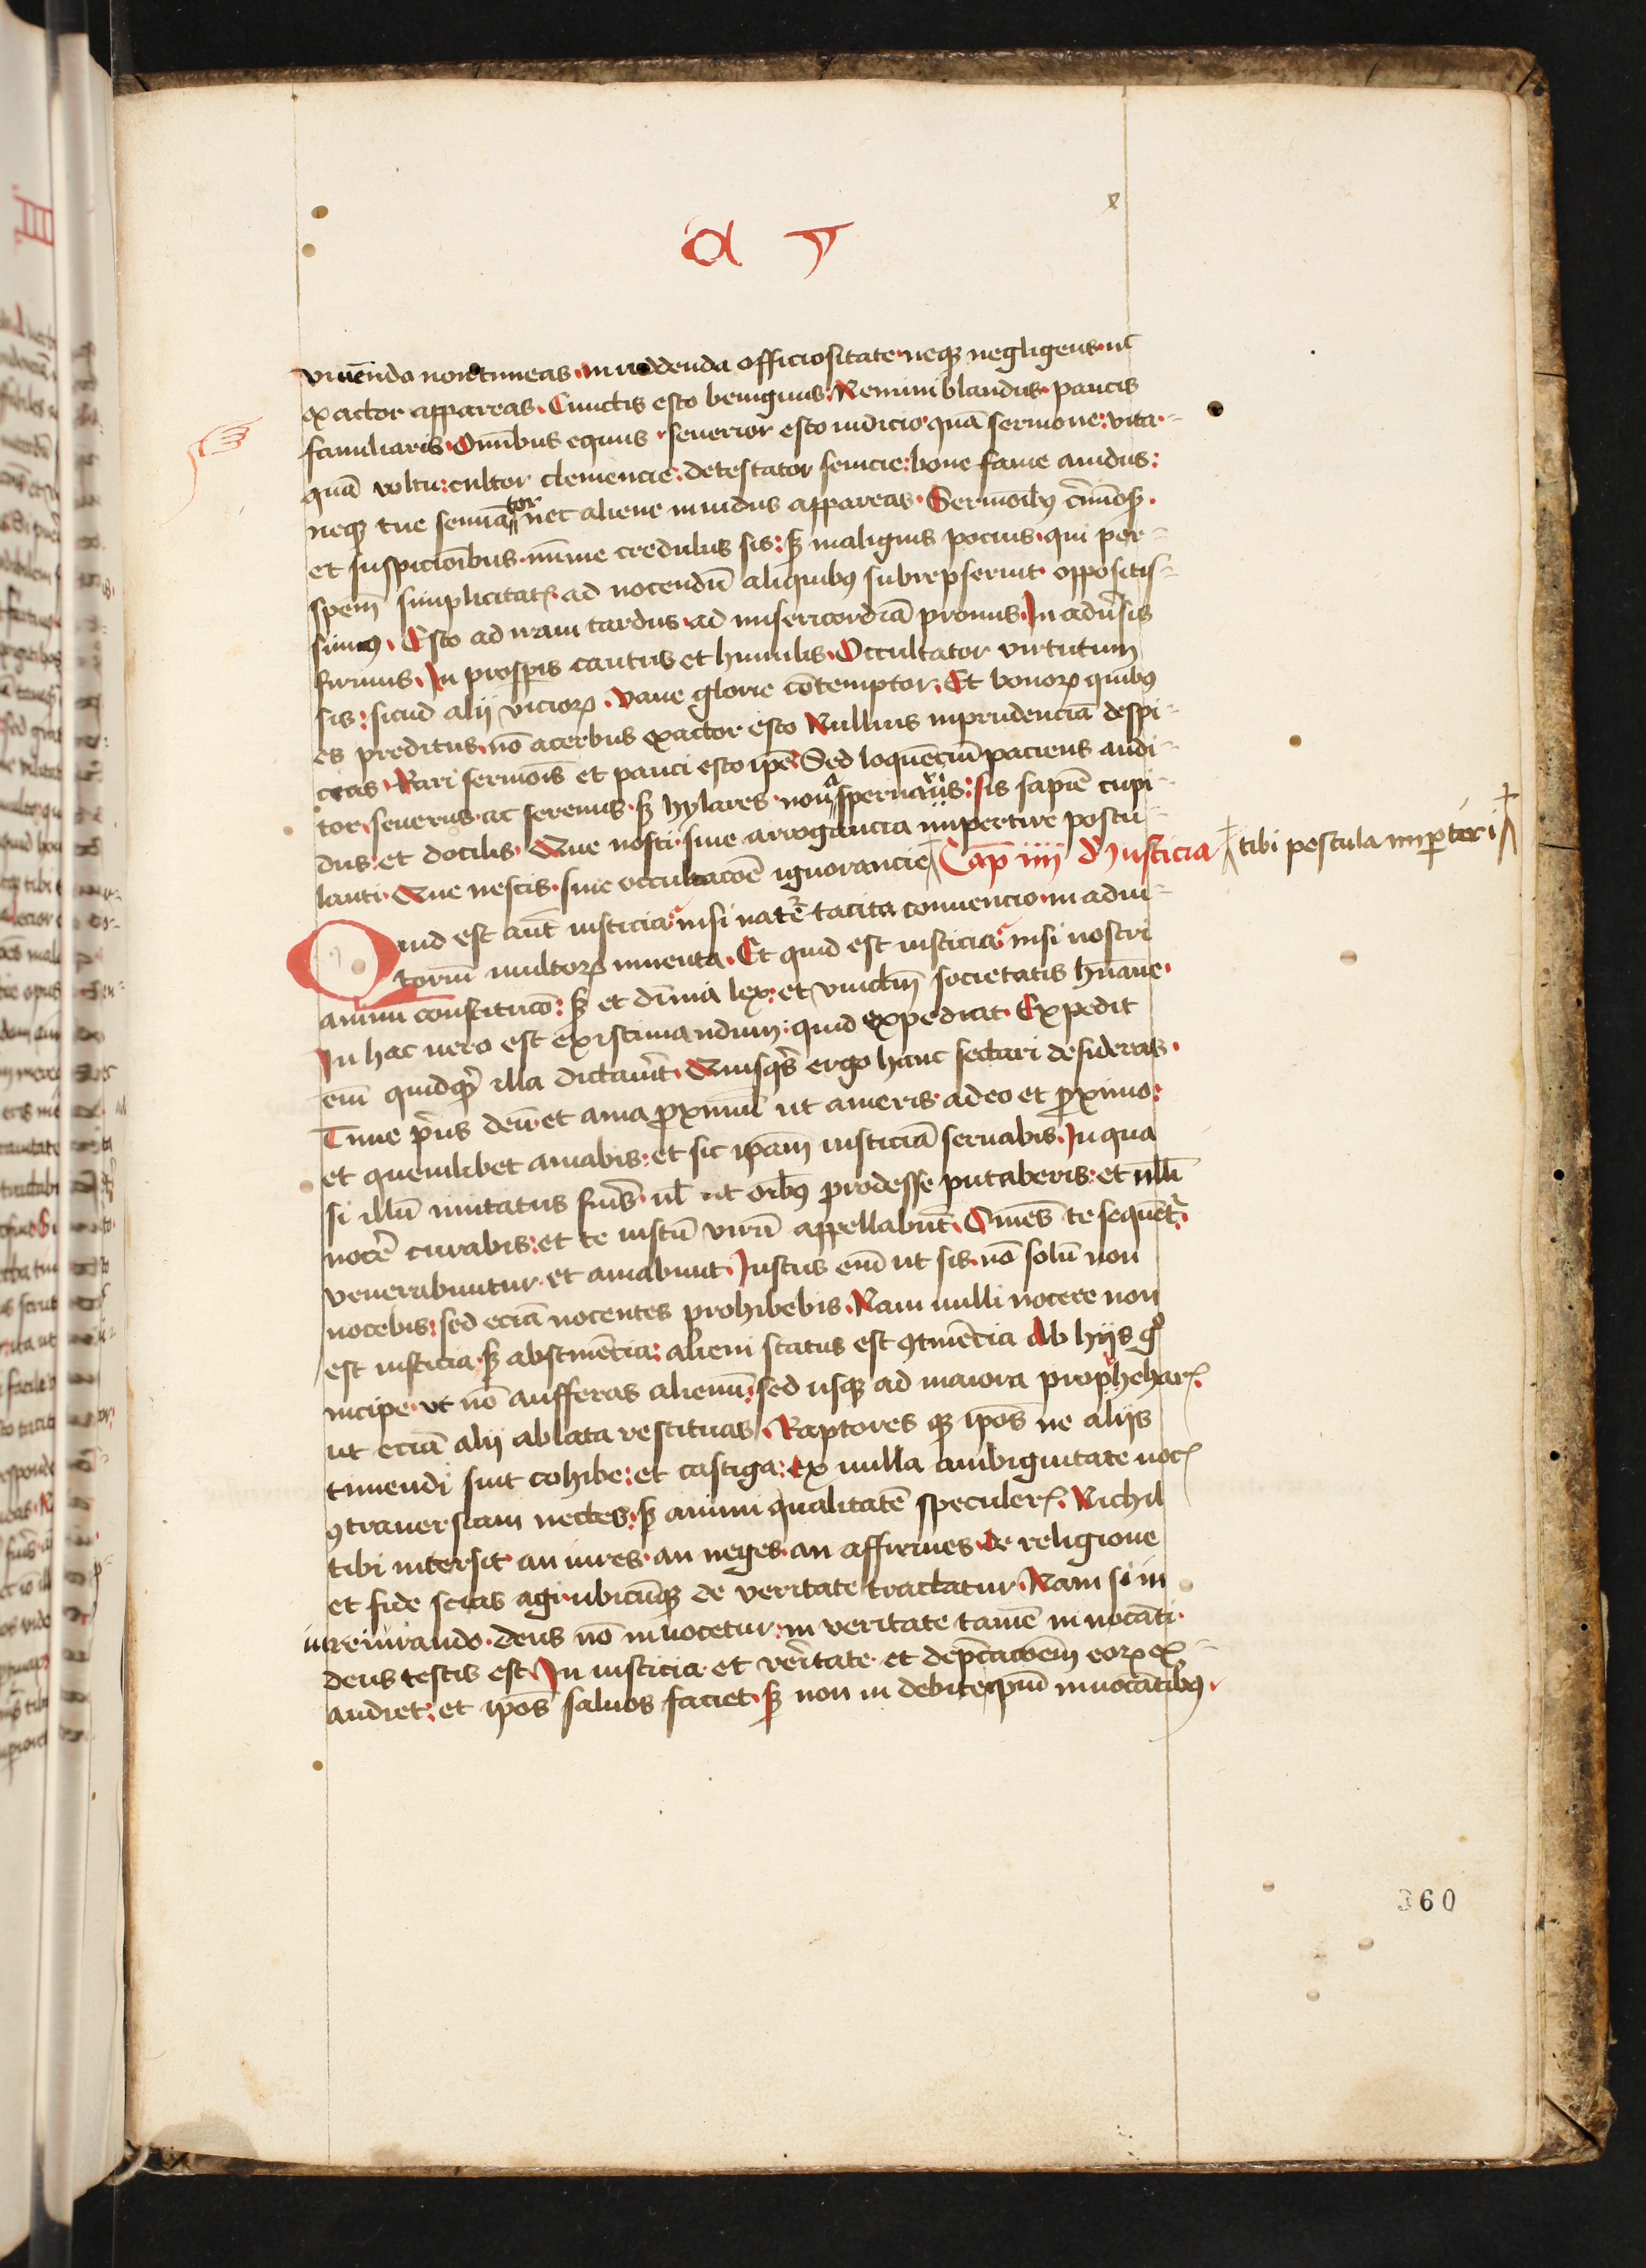 a v
viuendo non timeas in reddenda officiositate neq; negligens nec
exactor appareas. Cunctis esto benignus. Nemini blandus. paucis
familiaris. Omnibus equus. seuerior esto iudicio quā sermone: vita
quā voltu: cultor clemencie. detestator seuicie: bone fame auidus:
neq; tue seminator nec aliene inuidus appareas. Sermoībꝰ
et suspicioībus. mīme credulus sis: sꝫ malignis pocius qui per
spem̄ simplicitatꝭ ad nocendū aliquibꝰ subrepserint oppositis
simꝰ. Esto ad iram tardus ad misericordiā pronus. In adūsis
firmus. In prosperis cautus et humilis. Occultator virtutum
sis: sicud alij vicioꝝ. Vane glorie cōtemptor. Et bonoꝝ quibꝰ
es preditus nō acerbus exactor esto Nullius inprudenciā despi
cias Rari sermoīs et pauci esto ipē Sed loquēciū paciens audi
tor. seuerus ac serenus. sꝫ hylares non aspernaris: sis sapiē cupi
dus: et docilis. Que nosti. sine arrogancia impertire postu
lanti Que nescis. sine occultacōe ignorancie Cap̄ iiij d' Iusticia tibi postula imperteri
Quid est aūt iusticia nisi natē tacita conuencio in adiu
toriū multoꝝ inuenta. Et quid est iusticia nisi nostri
animi constitucō: sꝫ et diuina lex: et vinclm̄ societatis hūane.
In hac uero est existimandum: quid expediat. Expedit
em̄ quidqd' illa dictauerit. Quisqs ergo hanc sectari desideras.
Time prius deū et ama proximū ut ameris a deo et proximo:
et quemlibet amabis: et sic ipam̄ iusticiā seruabis. In qua
si illū imitatus fuis ul ut omībꝰ prodesse putaberis: et nulli
nocē curabis: et te iustū virū appellabūt. Omēs te sequētur
venerabuntur et amabunt. Iustus em̄ ut sis nō solū non
nocebis: sed eciā nocentes prohibebis. Nam nulli nocere non
est iusticia. sꝫ abstinēcia: alieni status est ꝯtinēcia Ab hijs gͦ
incipe. ut nō aufferas alienū: sed usq; ad maiora
ut eciā alij ablata restituas. Raptores q; ipōs ne alijs
timendi sint cohibe: et castiga: ex nulla ambiguitate uocꝭ
ꝯtrauersiam nectes. sꝫ animi qualitatē speculerꝭ. Nichil
tibi intersit an iures. an neges. an affirmes de religione
et fide scias agi ubicūq; de veritate tractatur. Nam si in
iureiurando. deus nō inuocetur: in veritate tamē inuocāti
deus testis est. In iusticia et veritate et depcacōem eoꝝ ex
audiet: et ipōs saluos faciet. sꝫ non indebite ipm̄ inuocātibꝰ.
360